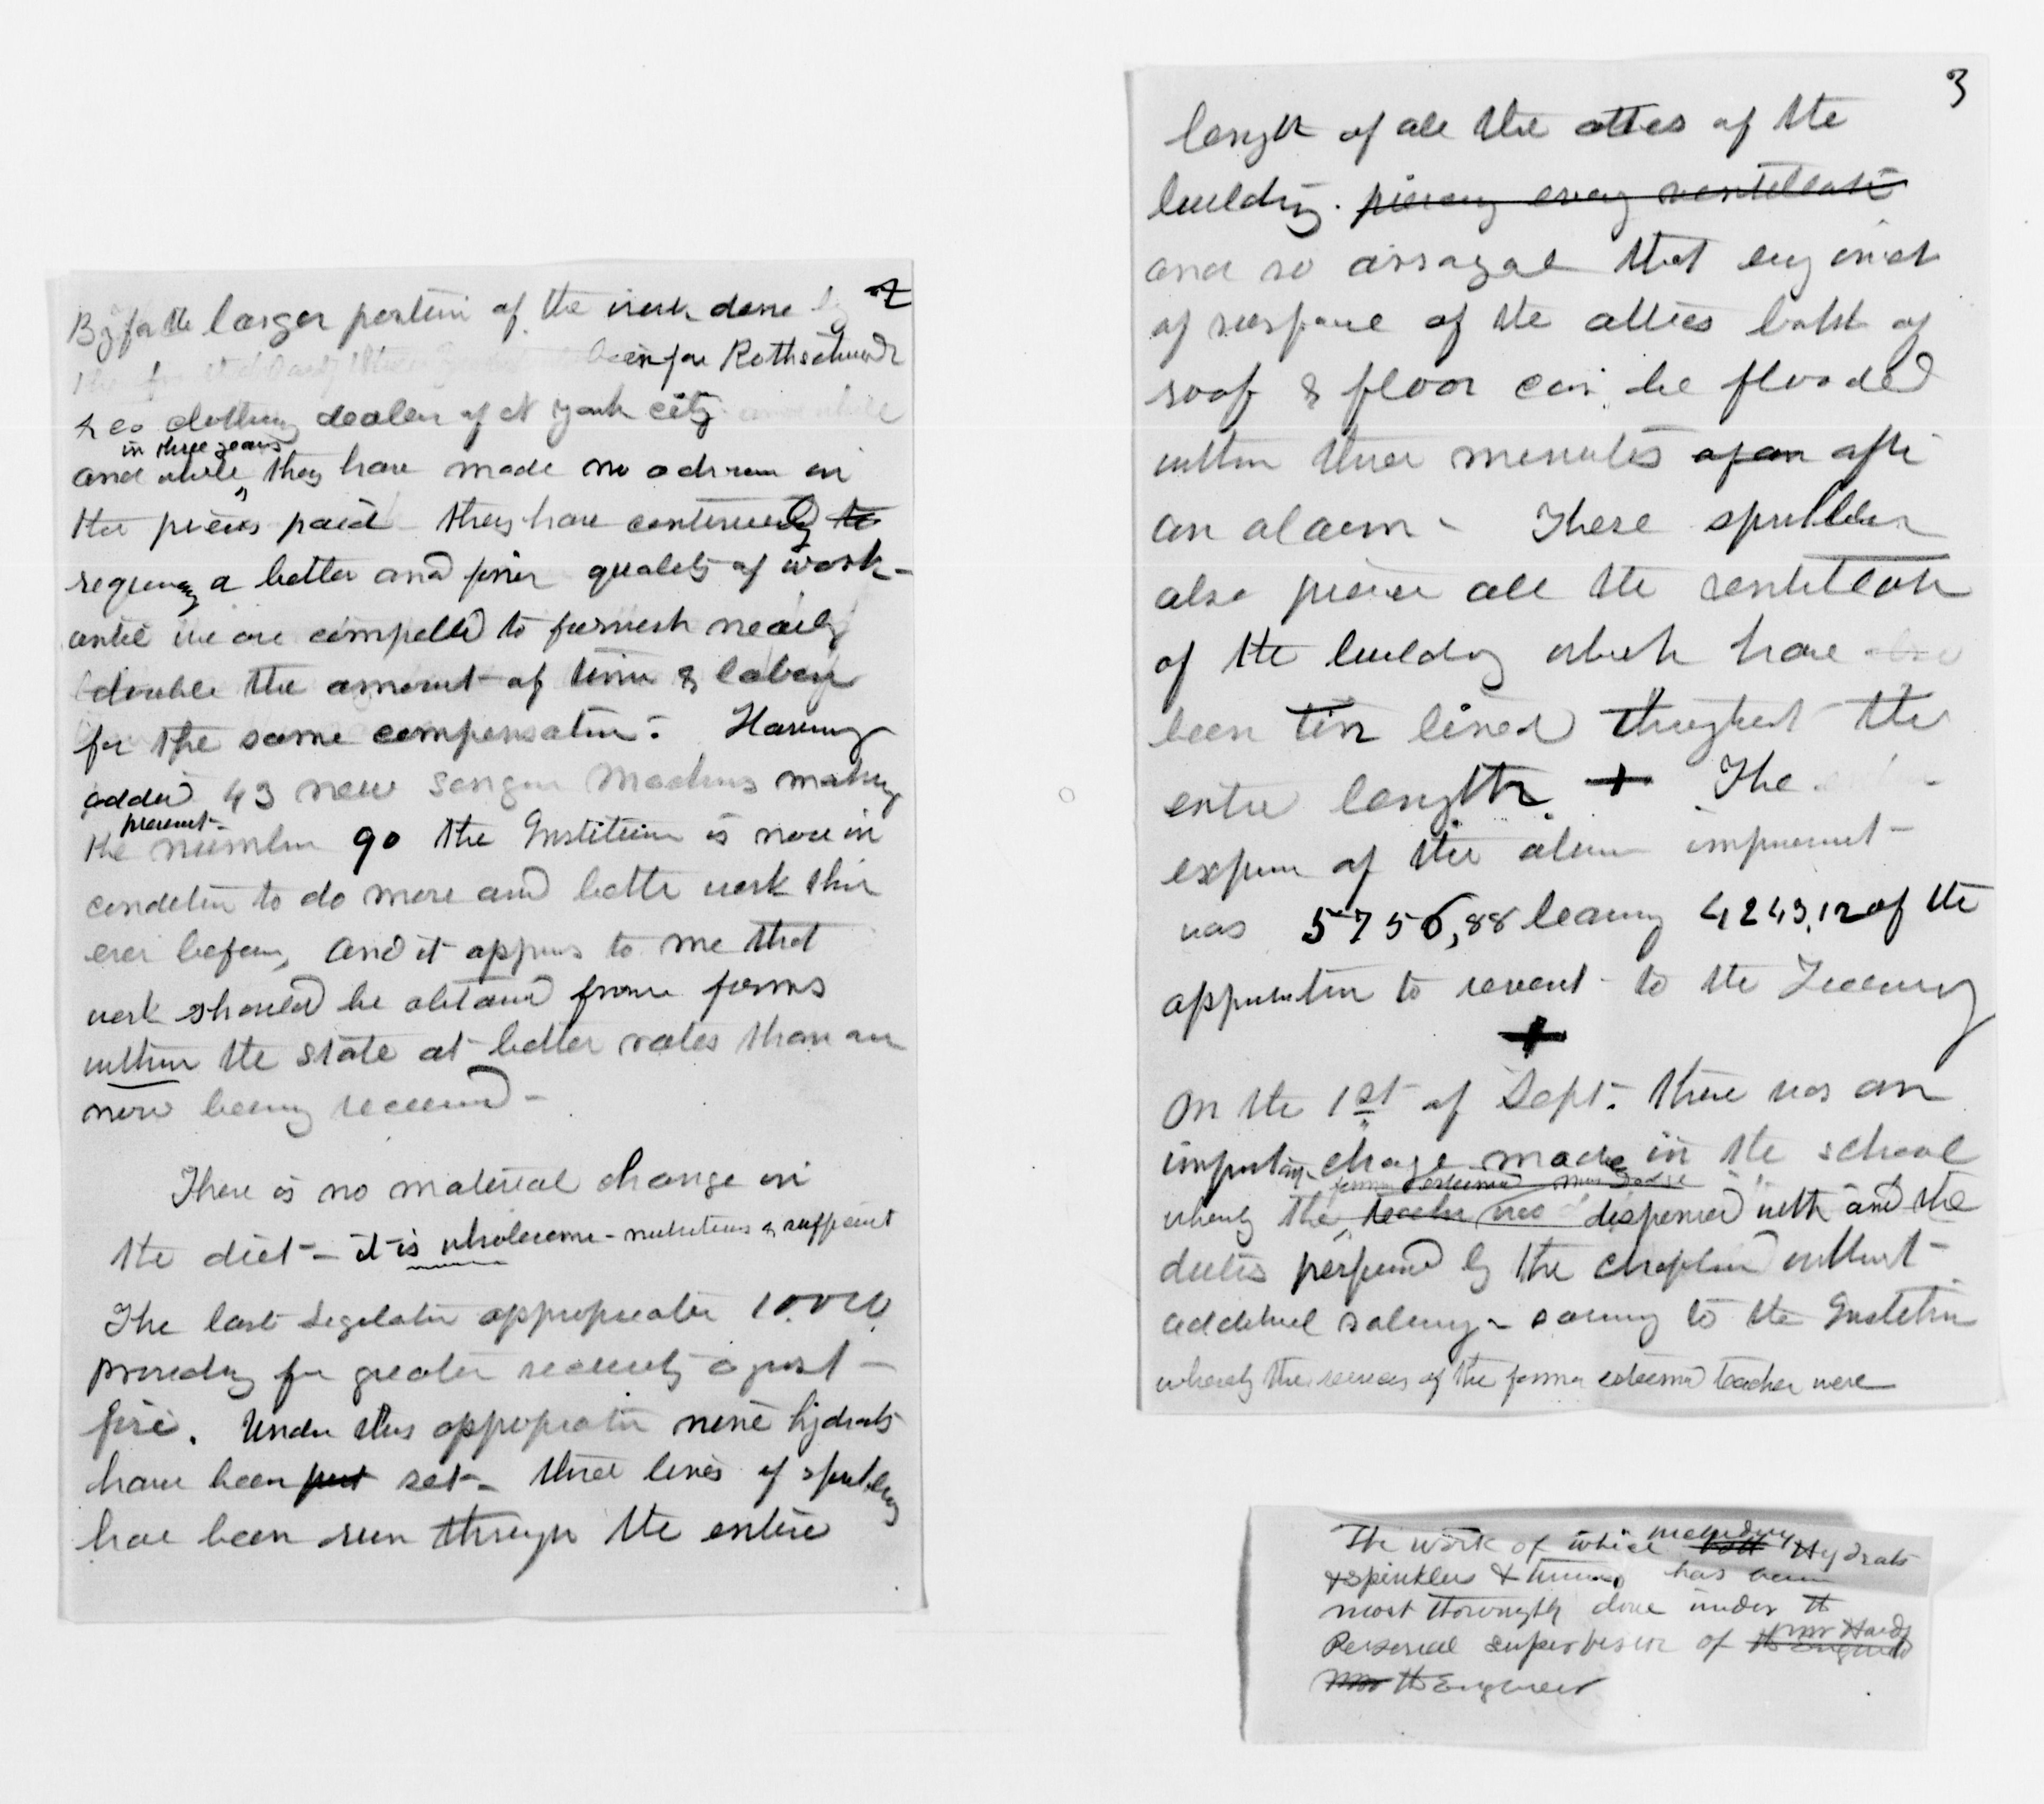 2
By far the larger portion of the work done by
been for Rothschild
& co clothing dealers of N York city
in three years
and while they have made no advance in
the prices paid they have continued to
requiring a better and finer quality of work -
until we are compelled to furnish nearly
double the amount of time & labor
for the same compensation. Having
added 43 new Singer Machines making
present
the number 90 the Institution is now in
condition to do more and better work than
ever before, and it appears to me that
work should be obtained from firms
within the state at better rates than are
now being received -
There is no material change in
the diet - it is wholesome - nutritious & sufficient
The last Legislature appropriated 10.000
providing for greater security against
fire. Under this appropriation nine hydrants
have been put set - three lines of sprinklers
have been run through the entire
3
length of all the attics of the
building. piercing every ventilator
and so arranged that every inch
of surface of the attics both of
roof & floor can be flooded
within three minutes after
an alarm - These sprinklers
also pierce all the ventilators
of the building which have also
been tin lined throughout the
entire length. + The
expense of the above improvement
was 5756,88 leaving 4243.12 of the
appropriation to revert to the Treasury
+
On the 1st of Sept. there was an
important change made in the school
former esteemed
whereby the teacher was dispensed with and the
duties performed by the chaplain without
additional salary - saving to the Institution
whereby the services of the former esteemed teacher were
including
The work of which both Hydrants
& sprinklers & tinning has been
most thoroughly done under the
Personal supervision of the Engineer
Mr Hardy
Mr the Engineer